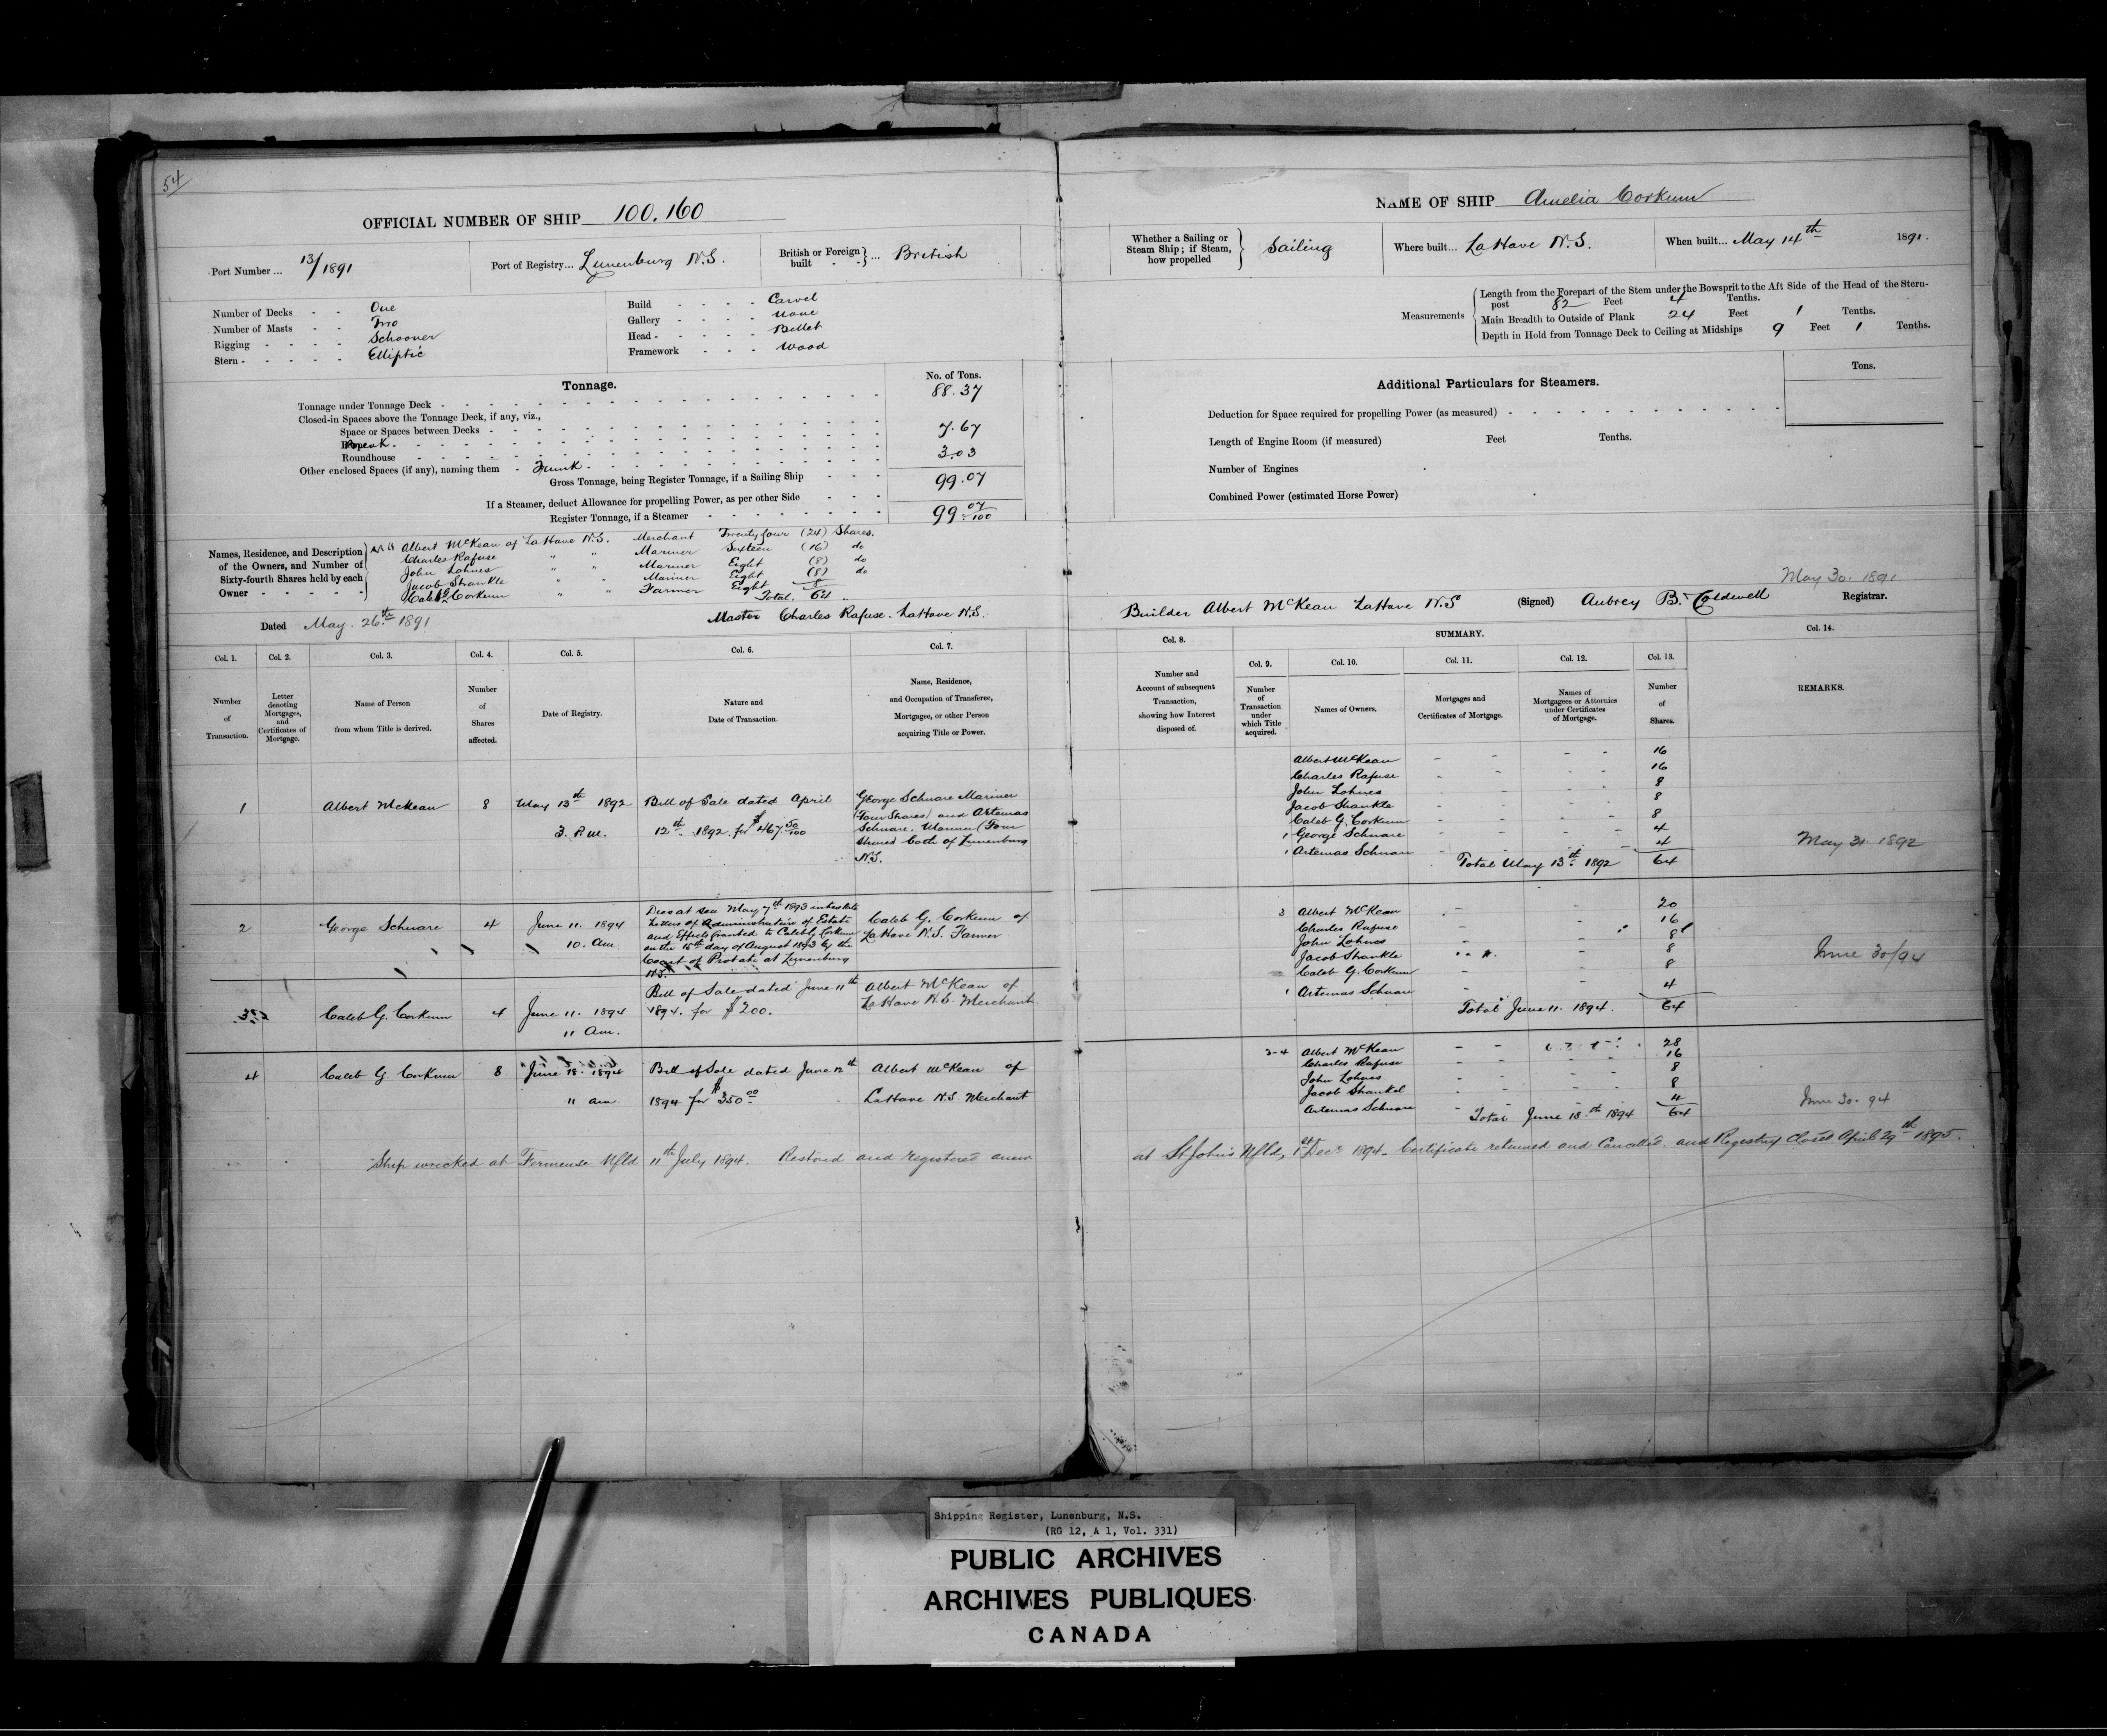 54
OFFICIAL NUMBER OF SHIP 100.160
Port Number ... 13/1891
Port of Registry... Lunenburg N.S.
British or Foreign built } ... British
Number of Decks - - One
Number of Masts - - Two
Rigging - - - - Schooner
Stern - - - - - Elliptic
Build - - - - Carvel
Gallery - - - - None
Head - - - - - Billet
Framework - - - Wood
Tonnage.
No. of Tons.
Tonnage under Tonnage Deck 88.37
Closed-in Spaces above the Tonnage Deck, if any, viz.,
Space or Spaces between Decks
Break 7.67
Roundhouse
Other enclosed Spaces (if any), naming them - Trunk 3.03
Gross Tonnage, being Register Tonnage, if a Sailing Ship 99.07
If a Steamer, deduct Allowance for propelling Power, as per other Side
Register Tonnage, if a Steamer 99 07/100
Names, Residence, and Description of the Owners, and Number of Sixty-fourth Shares held by each Owner
Albert McKean of LaHave N.S. Merchant Twenty four (24) Shares.
Charles Rafuse " " Mariner Sixteen (16) do
John Lohnes " " Mariner Eight (8) do
Jacob Shankle " " Mariner Eight (8) do
Caleb G Corkum " " Farmer Eight 8
Total. 64.
Dated May. 26th 1891
Master Charles Rafuse. LaHave N.S.
Col. 1. Col. 2. Col. 3. Col. 4. Col. 5. Col. 6. Col. 7.
Number of Transaction.
Letter denoting Mortgages, and Certificates of Mortgage.
Name of Person from whom Title is derived.
Number of Shares affected.
Date of Registry.
Nature and Date of Transaction.
Name, Residence, and Occupation of Transferee, Mortgagee, or other Person acquiring Title or Power.
1 Albert McKean 8 May 13th 1892 Bill of Sale dated April
3. P.M. 12th 1892 for $467 50/100
George Schnare Mariner
(Four Shares) and Artemas
Schnare. Mariner (Four
Shares both of Lunenburg
N.S.
2 George Schnare 4 June 11. 1894
10. Am.
Dies at sea May 7th 1893 intestate
Letters of Administration of Estate
and Effects Granted to Caleb G Corkum
on the 15th day of August 1893 by the
Court of Probate at Lunenburg
N.S.
Caleb G. Corkum of
LaHave N.S. Farmer
3 Caleb G. Corkum 4 June 11. 1894
11 Am.
Bill of Sale dated June 11th
1894. for $200.
Albert McKean of
LaHave N.S. Merchant
4 Caleb G Corkum 8 June 18. 1894
11 am.
Bill of Sale dated June 12th
1894 for $350 00
Albert McKean of
LaHave N.S Merchant
Ship wrecked at Fermeuse Nfld 11th July 1894. Restored and registered anew
NAME OF SHIP Amelia Corkum
Whether a Sailing or Steam Ship; if Steam, how propelled } Sailing
Where built... LaHave N.S.
When built... May 14th 1891.
Measurements
Length from the Forepart of the Stem under the Bowsprit to the Aft Side of the Head of the Stern-
post 82 Feet 4 Tenths.
Main Breadth to Outside of Plank 24 Feet 1 Tenths.
Depth in Hold from Tonnage Deck to Ceiling at Midships 9 Feet 1 Tenths.
Additional Particulars for Steamers.
Tons.
Deduction for Space required for propelling Power (as measured)
Length of Engine Room (if measured) Feet Tenths.
Number of Engines
Combined Power (estimated Horse Power)
May 30. 1891
Builder Albert McKean LaHave N.S (Signed) Aubrey B. Caldwell Registrar.
SUMMARY.
Col. 8. Col. 9. Col. 10. Col. 11. Col. 12. Col. 13. Col. 14.
Number and Account of subsequent Transaction, showing how Interest disposed of.
Number of Transaction under which Title acquired.
Names of Owners.
Mortgages and Certificates of Mortgage.
Names of Mortgagees or Attornies under Certificates of Mortgage.
Number of Shares.
REMARKS.
Albert McKean 16
Charles Rafuse 16
John Lohnes 8
Jacob Shankle 8
Caleb G. Corkum 8
1 George Schnare 4
1 Artemas Schnare 4
Total May 13th 1892 64
May 31. 1892
3 Albert McKean 20
Charles Rafuse 16
John Lohnes 8
Jacob Shankle 8
Caleb G. Corkum 8
1 Artemas Schnare 4
Total June 11. 1894. 64
June 30/94
3-4 Albert McKean 28
Charles Rafuse 16
John Lohnes 8
Jacob Shankel 8
Artemas Schnare 4
Total June 18th 1894 64
June 30. 94
at St John's Nfld, 1st Decr 1894. Certificate returned and Cancelled and Registry Closed April 29th 1895.
Shipping Register, Lunenburg, N.S.
(RG 12, A 1, Vol. 331)
PUBLIC ARCHIVES
ARCHIVES PUBLIQUES
CANADA